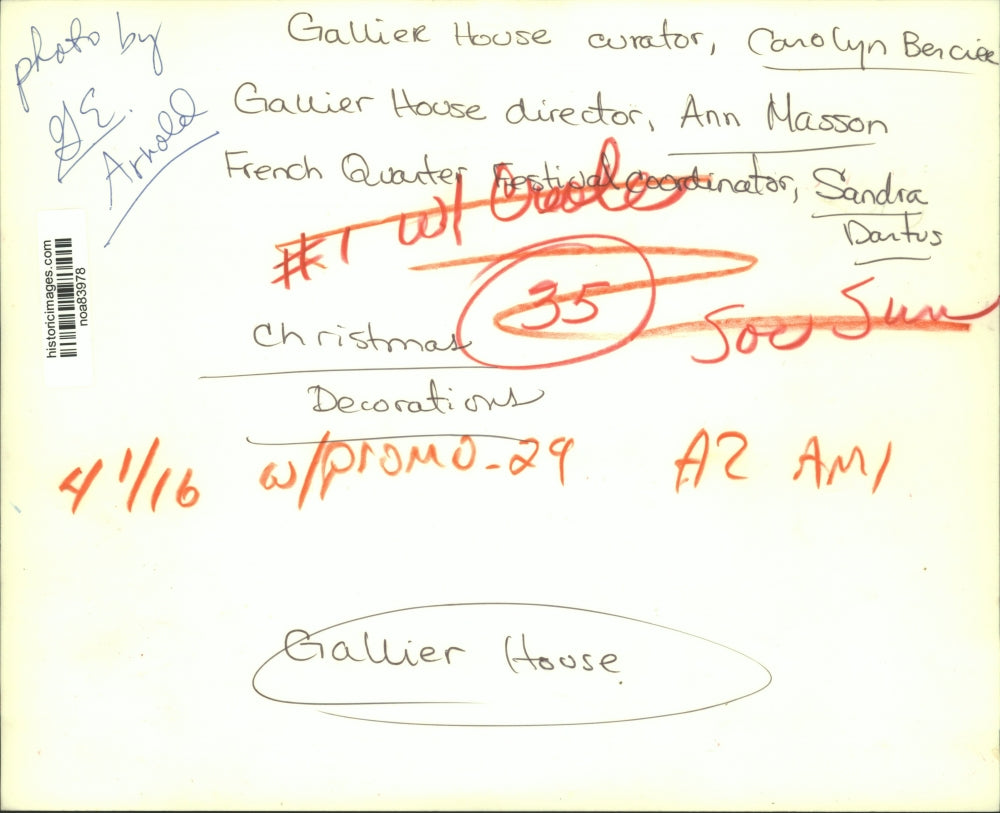 photo by
GE.
Arnold
Gallier House curator, Carolyn Berciee
Gallier House director, Ann Masson
French Quarter Festival coordinator, Sandra
Dartus
#1 w/ Creole
35
Soc Sun
Christmas
Decorations
4 1/16 w/promo-29 A2 AM1
Gallier House
historicimages.com
noa83978